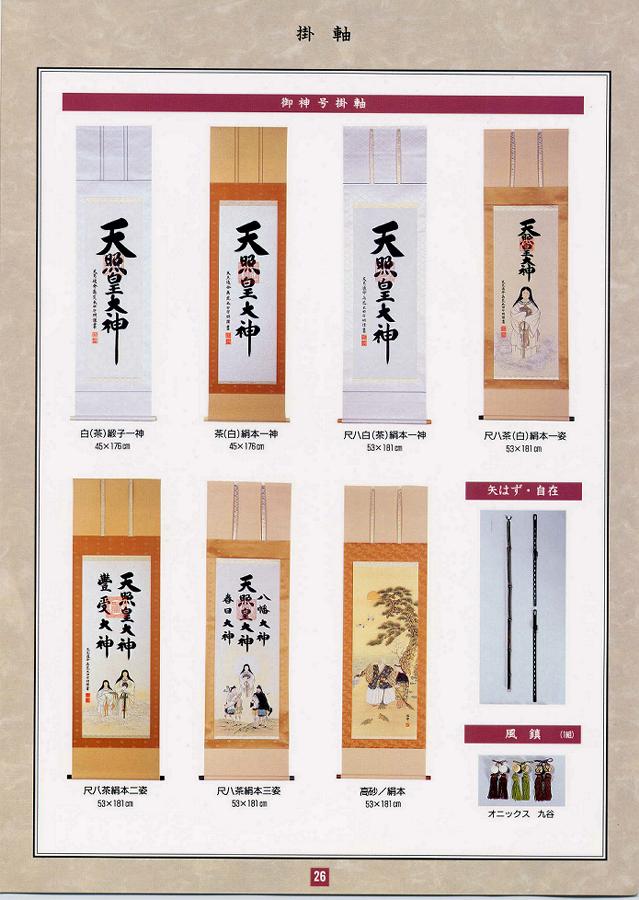 掛軸
御神号掛軸
天照皇大神
天照皇大神
天照皇大神
天照皇大神
白(茶)緞子一神
45×176cm
茶(白)絹本一神
45×176cm
尺八白(茶)絹本一神
53×181cm
尺八茶(白)絹本一姿
53×181cm
天照皇大神
豊受大神
八幡大神
天照皇大神
春日大神
尺八茶絹本二姿
53×181cm
尺八茶絹本三姿
53×181cm
高砂/絹本
53×181cm
矢はず・自在
風鎮 (1組)
オニックス 九谷
26